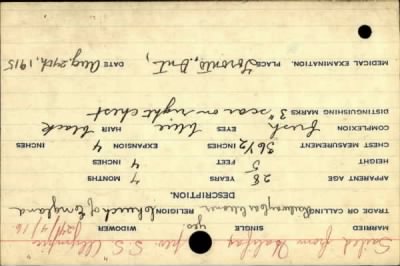 Sailed from Halifax per S.S. Olympic
5/4/16
MARRIED SINGLE yes WIDOWER
TRADE OR CALLING RELIGION Church of England
DESCRIPTION.
APPARENT AGE 28 YEARS 7 MONTHS
HEIGHT 5 FEET 4 INCHES
CHEST MEASUREMENT 36 1/2 INCHES EXPANSION 4 INCHES
COMPLEXION fresh EYES blue HAIR black
DISTINGUISHING MARKS 3" scar on right chest
MEDICAL EXAMINATION. PLACE Toronto, Ont, DATE Aug 24th, 1915